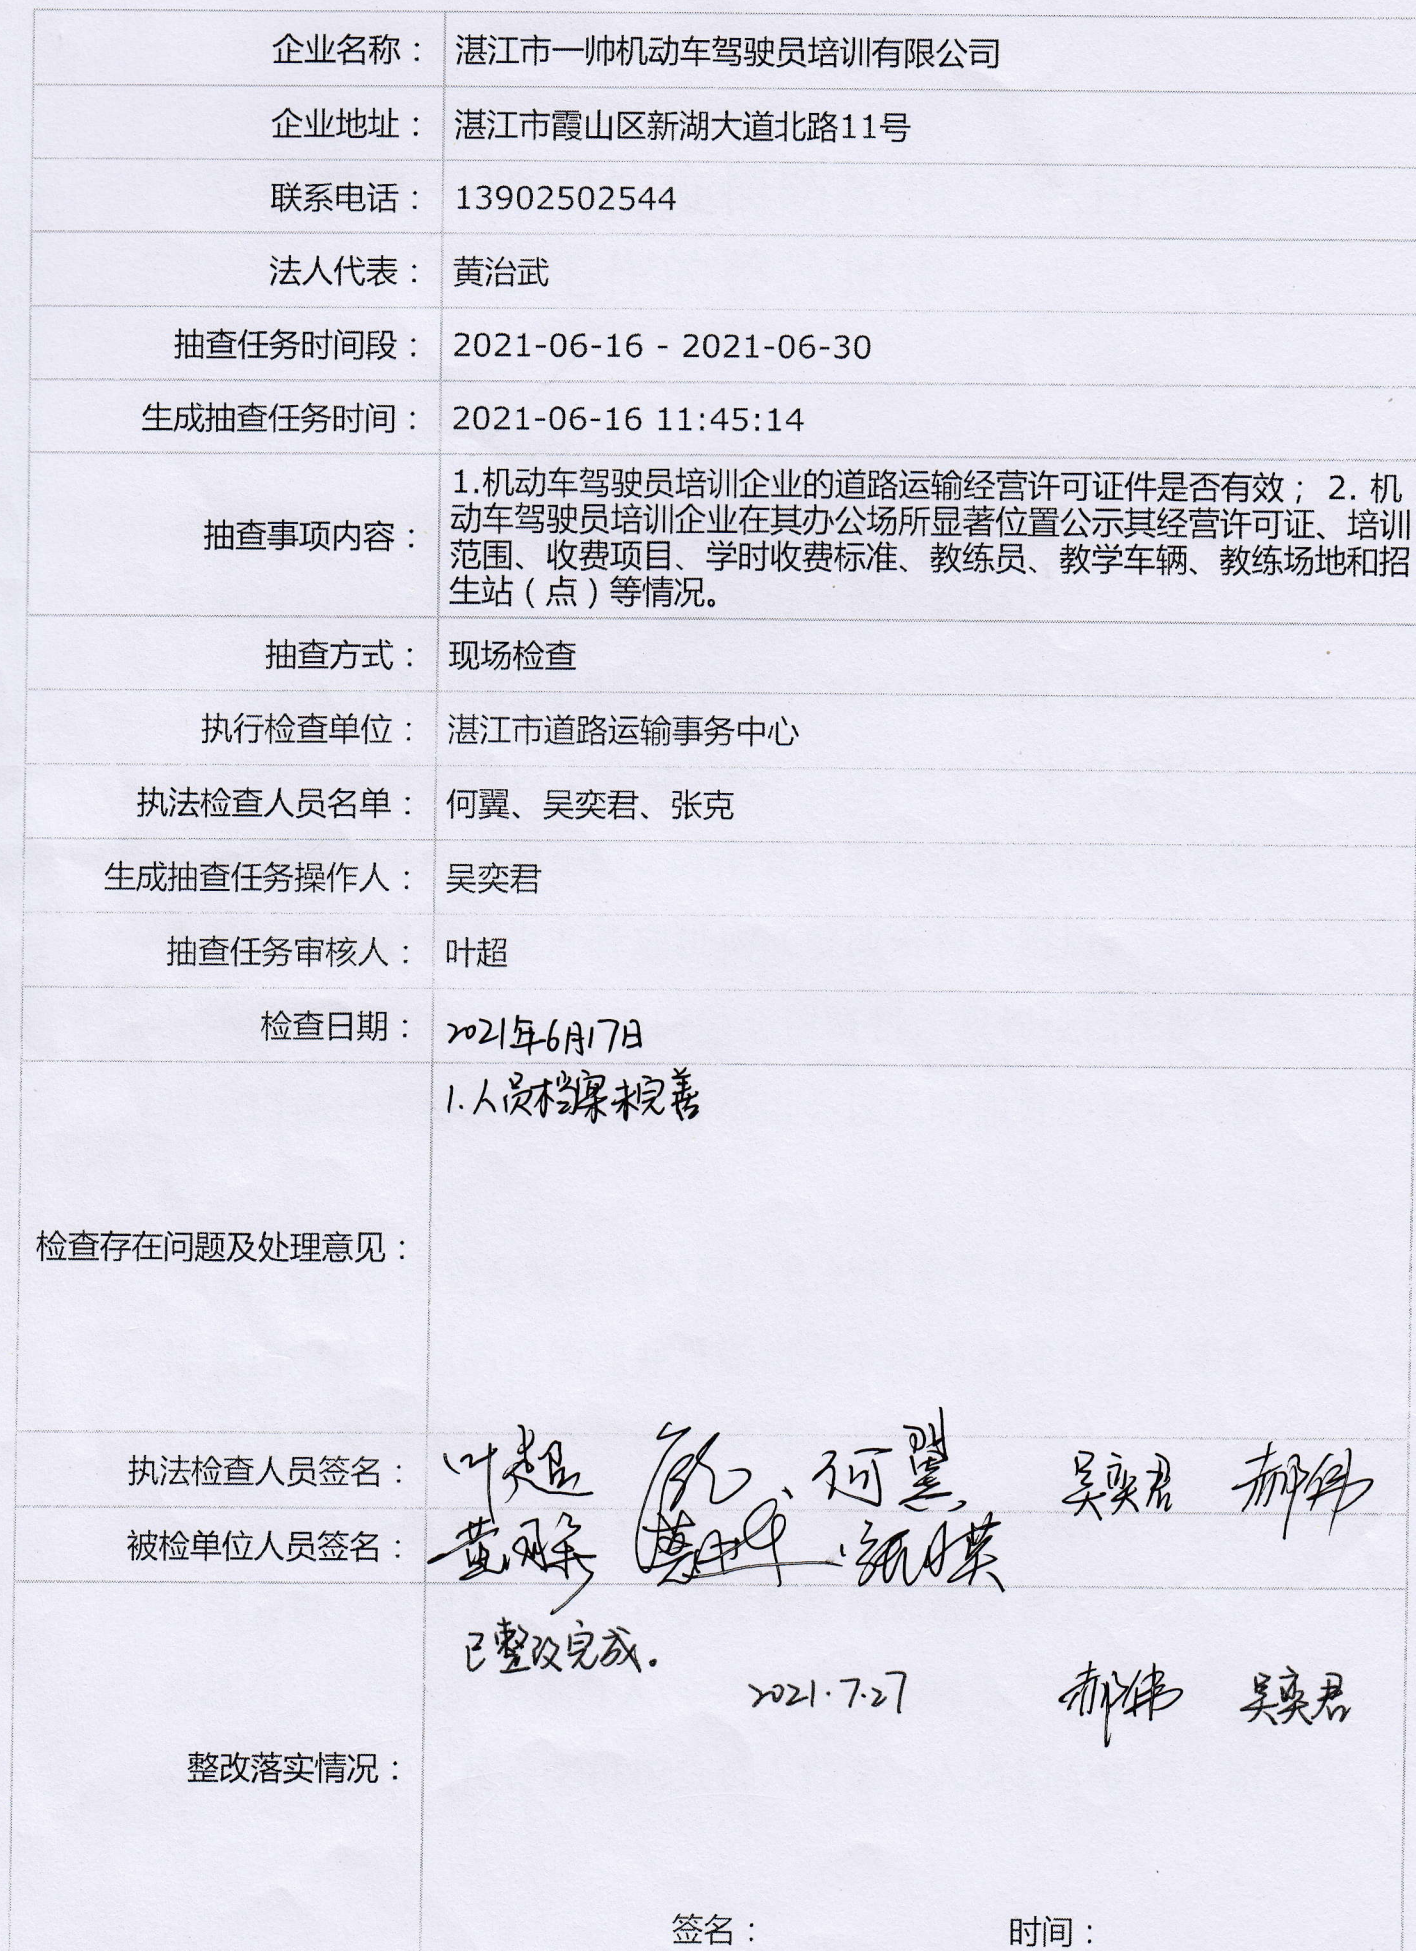 企业名称： 湛江市一帅机动车驾驶员培训有限公司
企业地址： 湛江市霞山区新湖大道北路11号
联系电话： 13902502544
法人代表： 黄治武
抽查任务时间段： 2021-06-16 - 2021-06-30
生成抽查任务时间： 2021-06-16 11:45:14
1.机动车驾驶员培训企业的道路运输经营许可证件是否有效； 2. 机
动车驾驶员培训企业在其办公场所显著位置公示其经营许可证、培训
抽查事项内容：
范围、收费项目、学时收费标准、教练员、教学车辆、教练场地和招
生站（点）等情况。
抽查方式： 现场检查
执行检查单位： 湛江市道路运输事务中心
执法检查人员名单： 何翼、吴奕君、张克
生成抽查任务操作人： 吴奕君
抽查任务审核人： 叶超
检查日期： 2021年6月17日
1.人员档案未完善
检查存在问题及处理意见：
执法检查人员签名： 叶超 何翼 吴奕君 郝伟
被检单位人员签名：
已整改完成。
2021.7.27 郝伟 吴奕君
整改落实情况：
签名： 时间：